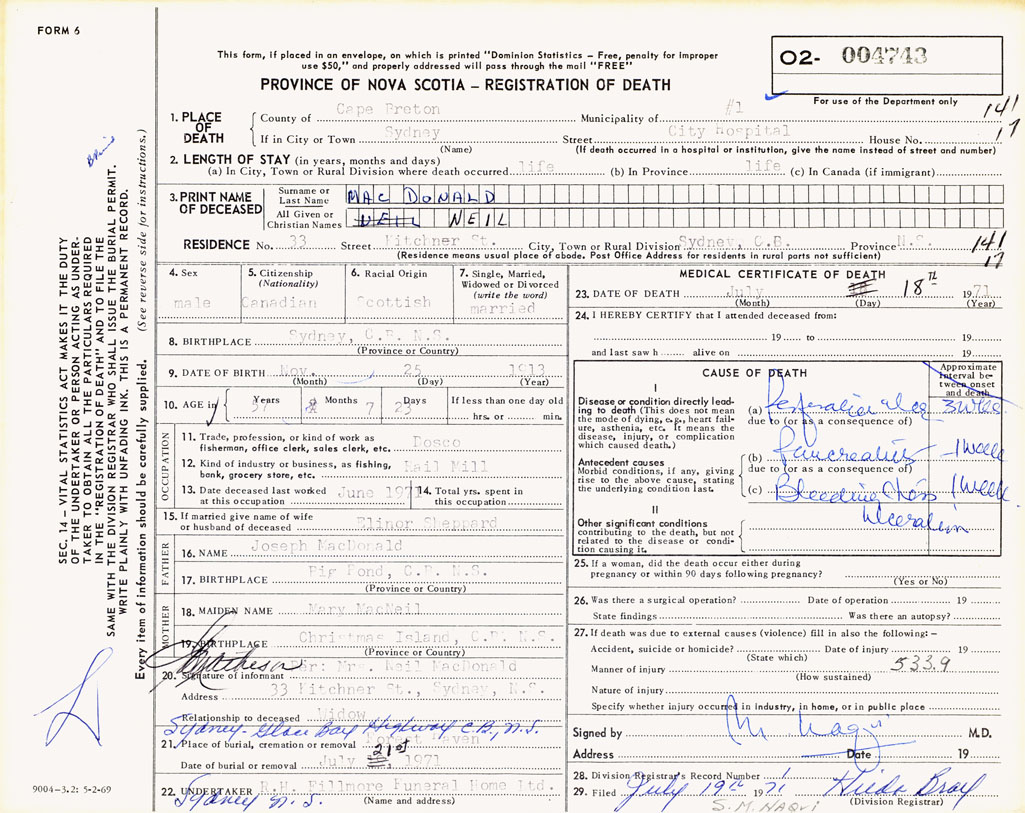 FORM 6
This form, if placed in an envelope, on which is printed "Dominion Statistics – Free, penalty for improper
use $50," and properly addressed will pass through the mail "FREE"
PROVINCE OF NOVA SCOTIA – REGISTRATION OF DEATH
O2- 004743
For use of the Department only
141
17
1. PLACE OF DEATH
County of Cape Breton Municipality of #1
If in City or Town Sydney Street City Hospital House No.
(Name) (If death occurred in a hospital or institution, give the name instead of street and number)
2. LENGTH OF STAY (in years, months and days)
(a) In City, Town or Rural Division where death occurred life (b) In Province life (c) In Canada (if immigrant)
3. PRINT NAME OF DECEASED
Surname or Last Name MAC DONALD
All Given or Christian Names NEIL NEIL
RESIDENCE No. 33 Street Kitchner St. City, Town or Rural Division Sydney, C.B. Province N.S. 141
(Residence means usual place of abode. Post Office Address for residents in rural parts not sufficient) 17
4. Sex male
5. Citizenship (Nationality) Canadian
6. Racial Origin Scottish
7. Single, Married, Widowed or Divorced (write the word) married
8. BIRTHPLACE Sydney, C.B. N.S.
(Province or Country)
9. DATE OF BIRTH Nov. 25 1913
(Month) (Day) (Year)
10. AGE in Years 57 Months 7 Days 23 If less than one day old hrs. or min.
OCCUPATION
11. Trade, profession, or kind of work as fisherman, office clerk, sales clerk, etc. Dosco
12. Kind of industry or business, as fishing, bank, grocery store, etc. Rail Mill
13. Date deceased last worked at this occupation June 1971
14. Total yrs. spent in this occupation
15. If married give name of wife or husband of deceased Elinor Sheppard
FATHER
16. NAME Joseph MacDonald
17. BIRTHPLACE Big Pond, C.B. N.S.
(Province or Country)
MOTHER
18. MAIDEN NAME Mary MacNeil
19. BIRTHPLACE Christmas Island, C.B. N.S.
(Province or Country)
Per: Mrs. Neil MacDonald
20. Signature of informant
Address 33 Kitchner St., Sydney, N.S.
Relationship to deceased Widow
Sydney-Glace Bay Highway C.B., N.S.
21. Place of burial, cremation or removal Forest Haven
21st
Date of burial or removal July 1971
22. UNDERTAKER R.H. Fillmore Funeral Home Ltd.
Sydney N.S. (Name and address)
MEDICAL CERTIFICATE OF DEATH
23. DATE OF DEATH July 18TH 1971
(Month) (Day) (Year)
24. I HEREBY CERTIFY that I attended deceased from:
19 to 19
and last saw h alive on 19
CAUSE OF DEATH
Approximate interval between onset and death
I
Disease or condition directly leading to death (This does not mean the mode of dying, e.g., heart failure, asthenia, etc. It means the disease, injury, or complication which caused death.)
(a) Perforation Ulcer 3 week
due to (or as a consequence of)
Antecedent causes
Morbid conditions, if any, giving rise to the above cause, stating the underlying condition last.
(b) Pancreatitis 1 week
due to (or as a consequence of)
(c) Bleeding 1 week
Ulceration
II
Other significant conditions contributing to the death, but not related to the disease or condition causing it.
25. If a woman, did the death occur either during pregnancy or within 90 days following pregnancy?
(Yes or No)
26. Was there a surgical operation? Date of operation 19
State findings Was there an autopsy?
27. If death was due to external causes (violence) fill in also the following: –
Accident, suicide or homicide? Date of injury 19
(State which) 533.9
Manner of injury
(How sustained)
Nature of injury
Specify whether injury occurred in industry, in home, or in public place
Signed by M. Naqui M.D.
Address Date 19
28. Division Registrar's Record Number
29. Filed July 19th 1971 Hilda Bray
S.M. NAQVI (Division Registrar)
SEC. 14 – VITAL STATISTICS ACT MAKES IT THE DUTY
OF THE UNDERTAKER OR PERSON ACTING AS UNDER-
TAKER TO OBTAIN ALL THE PARTICULARS REQUIRED
IN THE "REGISTRATION OF DEATH" AND TO FILE THE
SAME WITH THE DIVISION REGISTRAR WHO SHALL ISSUE THE BURIAL PERMIT.
WRITE PLAINLY WITH UNFADING INK. THIS IS A PERMANENT RECORD.
Every item of information should be carefully supplied. (See reverse side for instructions.)
9004-3.2: 5-2-69